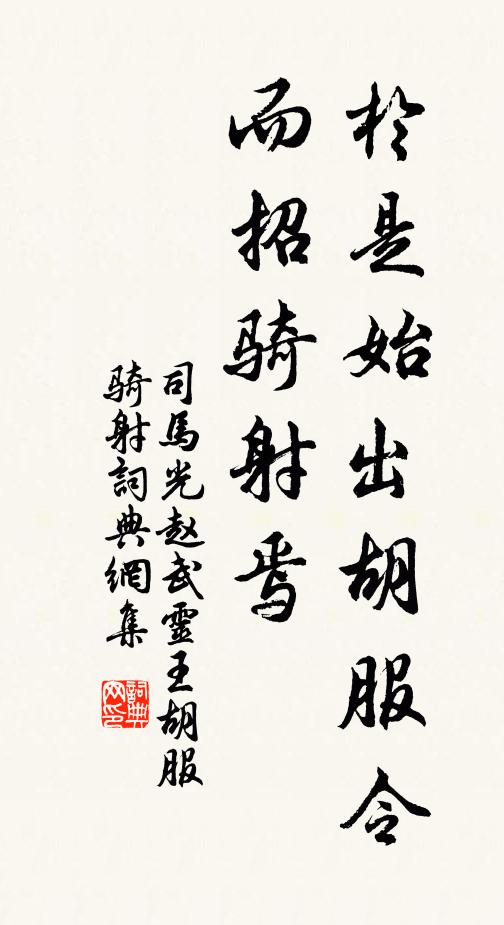 於是始出胡服令
而招騎射焉
司馬光赵武靈王胡服
騎射詞典網集
詞典
网印